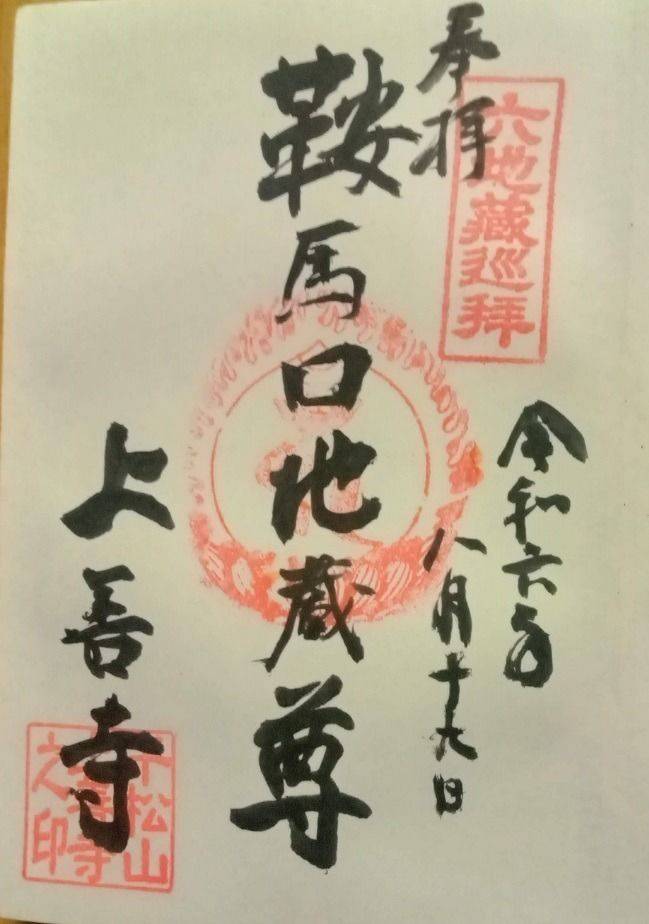 奉拝
六地蔵巡拝
令和六年
八月十九日
鞍馬口地蔵尊
上善寺
千松山
上善寺
之印